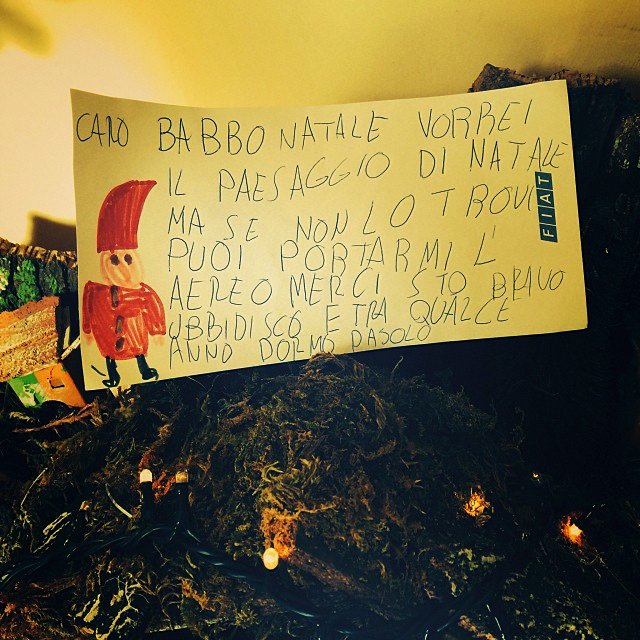 CARO BABBO NATALE VORREI
IL PAESAGGIO DI NATALE
MA SE NON LO TROVI
PUOI PORTARMI L'
AEREO MERCI STO BRAVO
UBBIDISCO E TRA QUALCE
ANNO DORMO DASOLO
FIAT